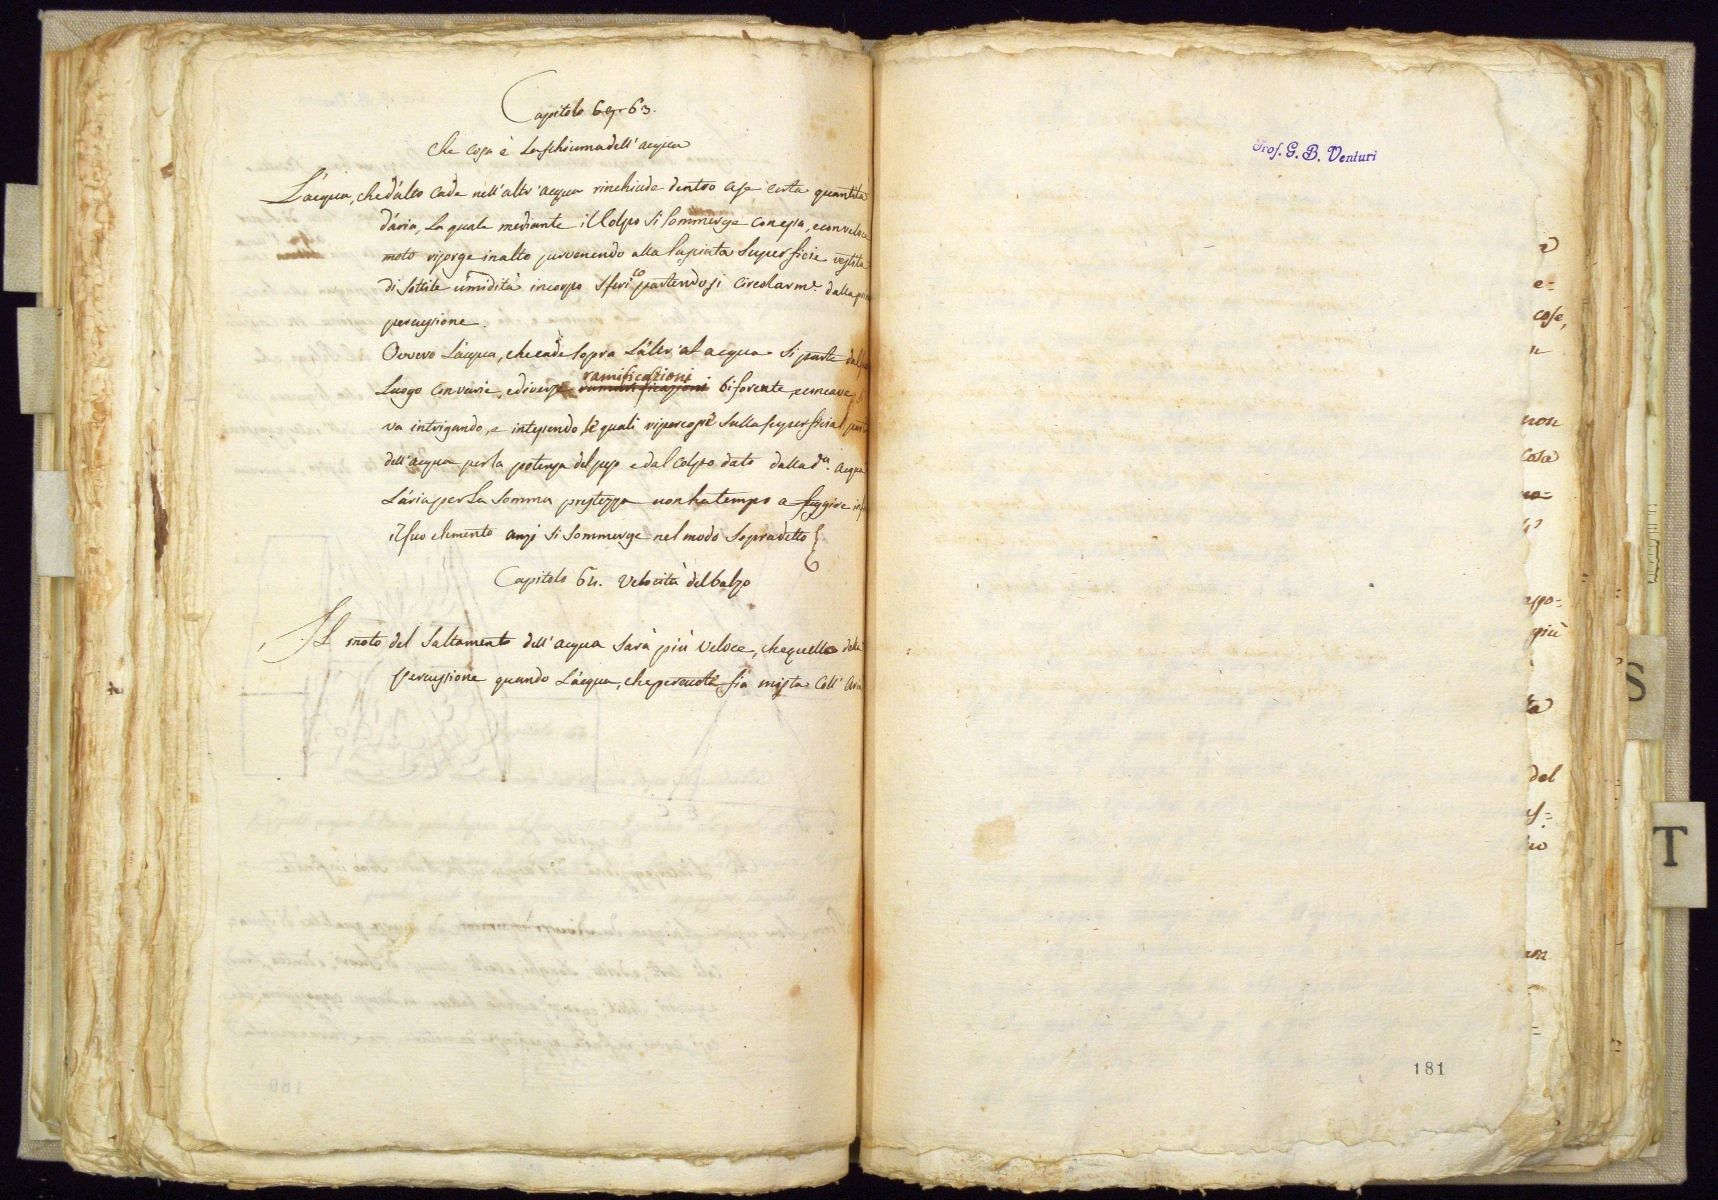 Capitolo 63.
Che cosa è la schiuma dell' acqua
L'acqua, che d'alto cade nell'altr' acqua rinchiude dentro a se certa quantità
d'aria, la quale mediante il Colpo si sommerge con essa, e con veloce
moto risorge in alto pervenendo alla lasciata superficie vestita
di sottile umidità in corpo sferico partendosi circolarm.e dalla
percussione.
Ovvero L'acqua, che cade sopra L'altr' acqua si parte dal
Luogo con varie, e diverse ramificazioni biforcate, e concave,
va intrigando, e intessendo, le quali ripercosse sulla superficial
dell'acqua per la potenza del peso e dal colpo dato dalla d.a Acqua
L'aria per la somma prestezza non ha tempo a fuggire
il suo elemento anzi si sommerge nel modo sopradetto
Capitolo 64. Velocità del balzo
Il moto del saltamento dell' acqua sarà più veloce, che quello della
percussione quando L'acqua, che percuote sia mista coll' Aria
Prof. G. B. Venturi
e-
cose,
non
Cosa
appo=
più
del
181
S
T